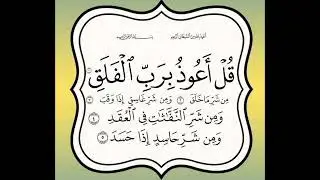 أعوذ بالله من الشيطان الرجيم بسم الله الرحمن الرحيم
قُلْ أَعُوذُ بِرَبِّ ٱلْفَلَقِ ١
مِن شَرِّ مَا خَلَقَ ٢ وَمِن شَرِّ غَاسِقٍ إِذَا وَقَبَ ٣
وَمِن شَرِّ ٱلنَّفَّـٰثَـٰتِ فِى ٱلْعُقَدِ ٤
وَمِن شَرِّ حَاسِدٍ إِذَا حَسَدَ ٥